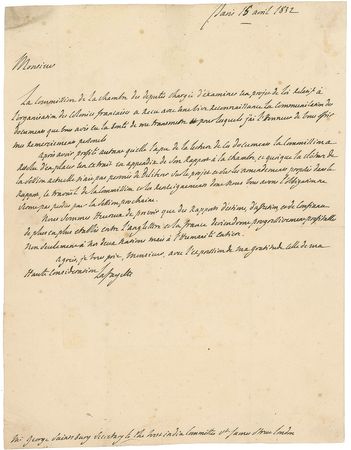 Paris 18 avril 1832
Monsieur
La Commission de la chambre des deputés chargée d'examiner un projet de loi relatif à
l'organisation des Colonies françaises a recu avec une vive Reconnaissance la Communication des
documens que vous avez eu la bonté de me transmettre et pour lesquels j'ai l'honneur de vous offrir
mes Remerciemens personels
après avoir profité autant que de la lecture de ces documens la Committee a
d'en placer un extrait en appendice de son Rapport à la chambre, et quoique la cloture de
la Session actuelle n'ait pas permis de Deliberer sur le projet et sur les amendements proposés dans le
Rapport, le travail de la Committee et les Renseignements dont Nous vous avons l'obligation ne
seront pas perdus par la Session prochaine.
Nous Sommes Heureux de prevoir que des Rapports d'estime, d'affection et de Confiance
de plus en plus etablis entre l'angleterre et la france deviendront progressivement profitables
Non Seulement à nos deux Nations mais à l'Humanité entiere.
agreés, je vous prie, monsieur, avec l'expression de ma gratitude, celle de ma
Haute Consideration
Lafayette
Mr George Saintsbury Secretary to the West india Committee St James Street London